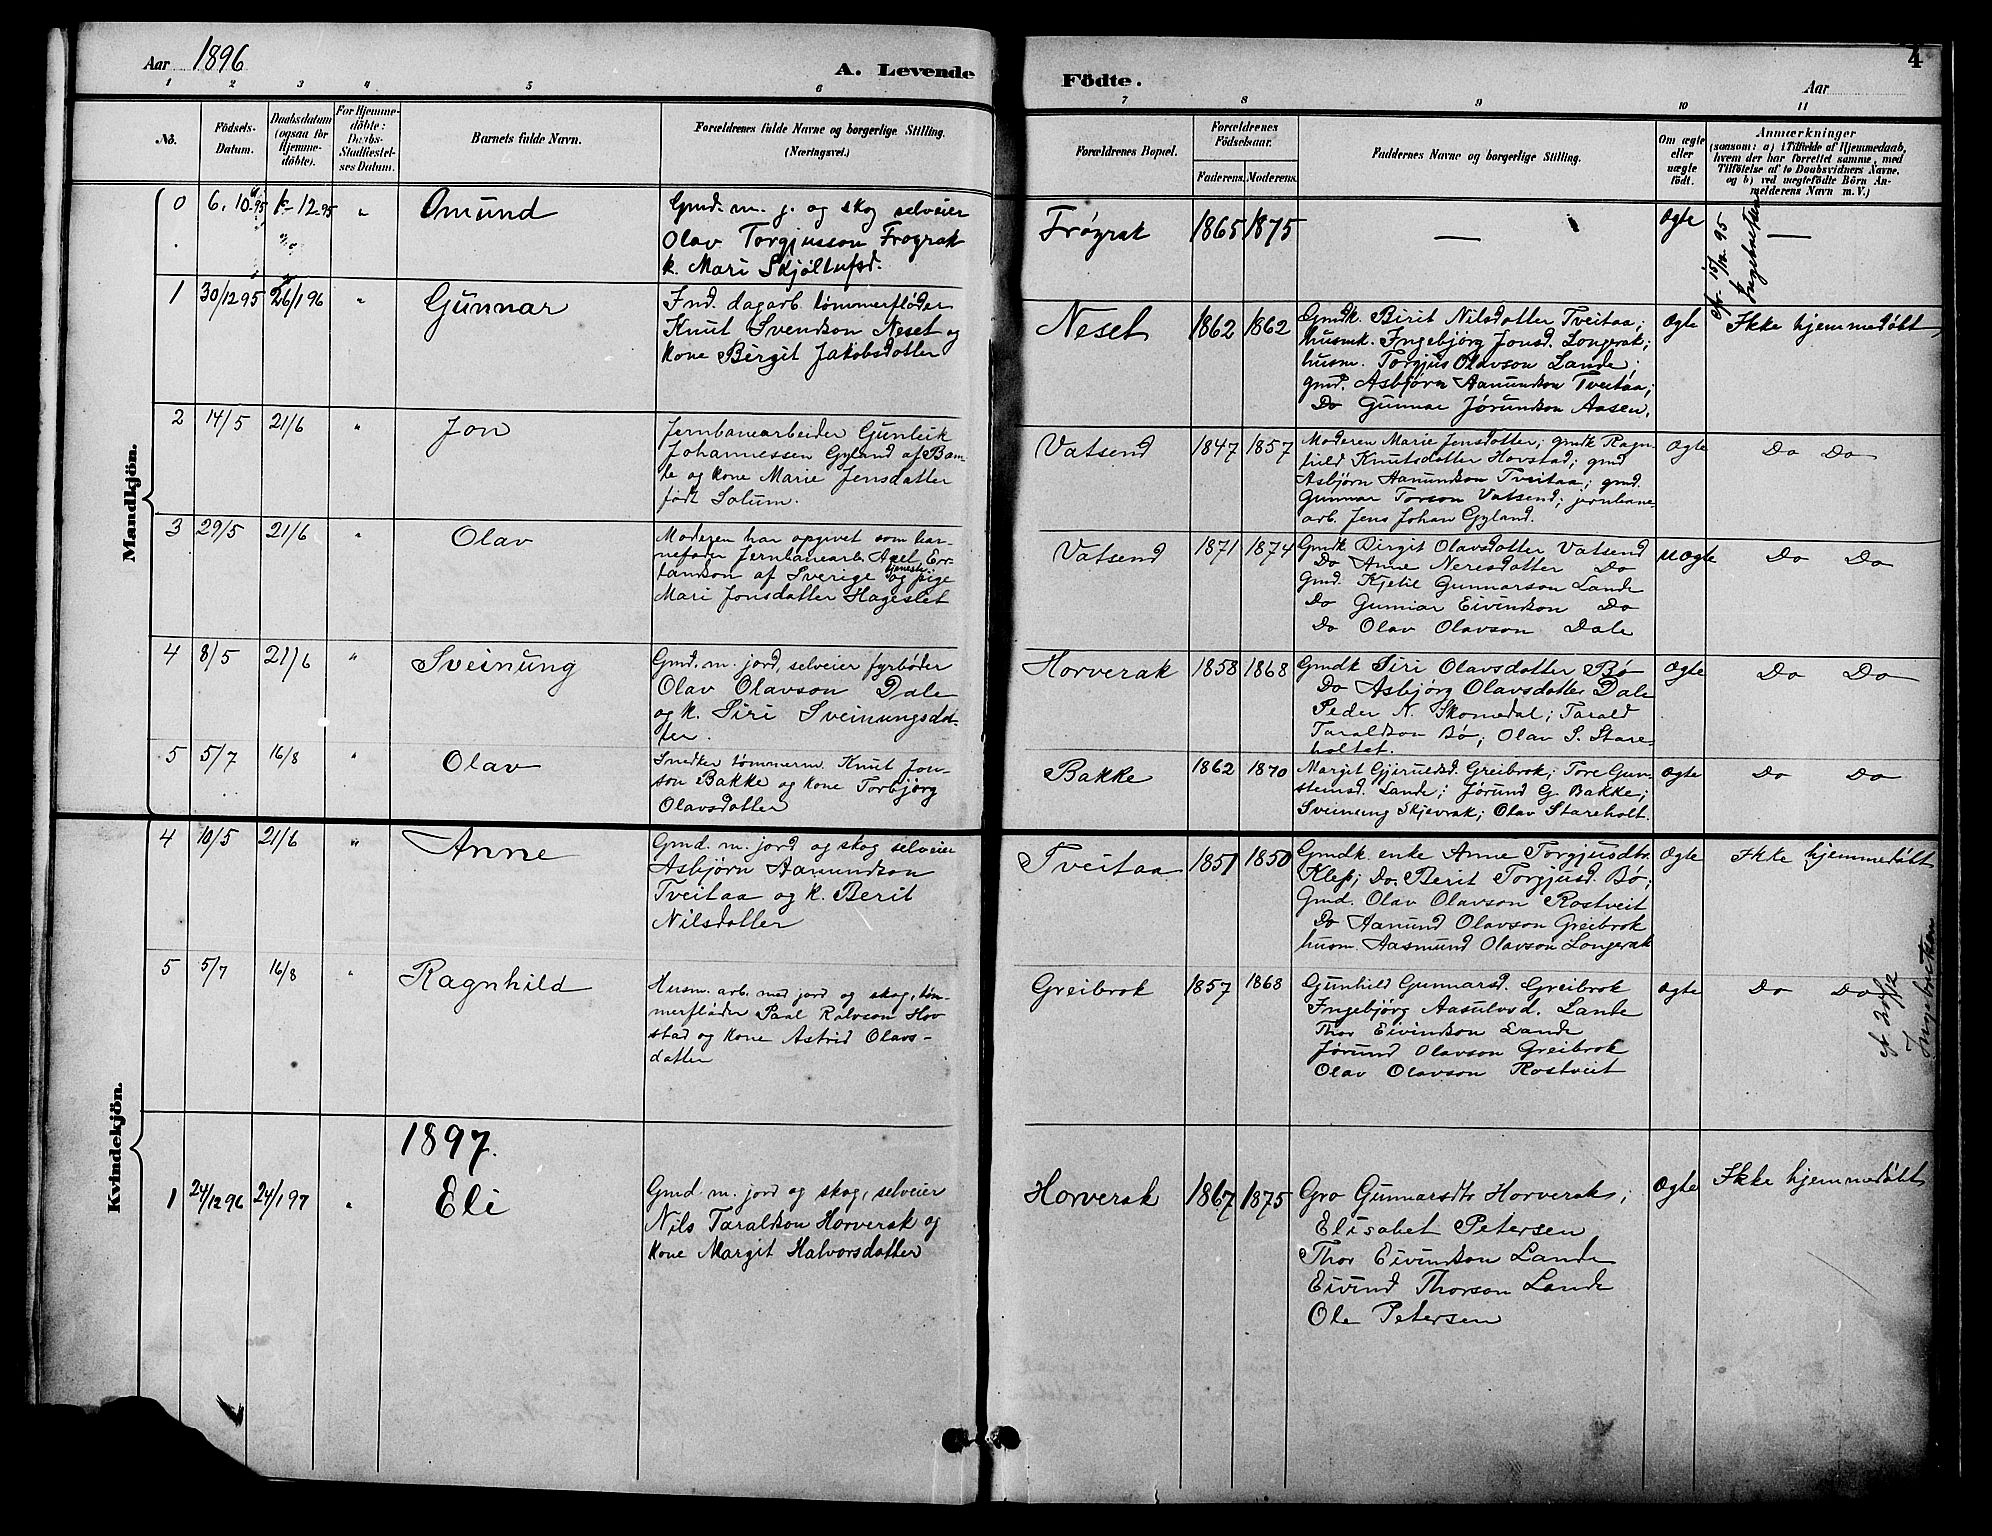 Aar 1896
A. Levende
Födte.
Aar
4
1 2 3 4 5 6
7 8 9 10 11
No.
Födsels-
Datum.
Daabsdatum
(ogsaa for
Hjemme-
döbte).
For Hjemme-
döbte:
Daabs-
Stadfæstel-
ses Datum.
Barnets fulde Navn.
Forældrenes fulde Navne og borgerlige Stilling.
(Næringsvei.)
Forældrenes Bopæl.
Forældrenes
Födselsaar.
Faderens. Moderens.
Faddernes Navne og borgerlige Stilling.
Om ægte
eller
uægte
født.
Anmærkninger
(saasom: a) i Tilfælde af Hjemmedaab,
hvem der har forrettet samme, med
Tilföielse af to Daabsvidners Navne,
og b) ved uægtefödte Börn An-
melderens Navn m. V.)
Mandkjön.
0 6. 10.95 12.95 " Omund
Gmd. m. j. og skog selveier
Olav Torgjusson Frøgrak
k. Mari Skjøllufsd.
Frøyrak 1865 1875 — Ægte —
15/12.95
1 30/12 95 26/1 96 " Gunnar
Ind. dagarb. tømmerfløder
Knut Svendson Neset og
kone Birgit Jakobsdotter
Neset 1862 1862
Gmdk. Birit Nilsdotter Tveitaa;
husmk. Ingebjörg Jonsd. Longerak;
husm. Torgjus Olavson Lande;
gmd. Asbjørn Aanundson Tveitaa;
Do Gunnar Jørundson Aasen.
Ægte Ikke hjemmedøbt
2 14/5 21/6 " Jon
Jernbanearbeider Gunleik
Johannessen Gyland af Bam-
le og kone Marie Jensdatter
født Solum.
Vatsend 1847 1857
Moderen Marie Jensdotter; gmdk Ragn-
hild Knutsdotter Hovstad; gmd
Asbjörn Aanundson Tveitaa; gmd.
Gunnar Torson Vatsend; jernbane-
arb. Jens Johan Gyland.
Ægte Do Do
3 29/5 21/6 " Olav
Moderen har opgivet som bar-
nefader Jernbanearb Axel Er-
landson af Sverige og tjeneste-
pige
Mari Jonsdatter Hageslet
Vatsend 1871 1874
Gmdk Birgit Olavsdotter Vatsend
Do Anne Neresdotter Do
Gmd. Kjetil Gunnarson Lande
Do Gunnar Eivindson Do
Do Olav Olavson Dale
uægte Do Do
4 8/5 21/6 " Sveinung
Gmd. m. jord, selveier fyrbøder
Olav Olavson Dale
og k. Siri Sveinungsdot-
ter.
Horverak 1858 1868
Gmdk Siri Olavsdotter Bø
Do Asbjørg Olavsdotter Dale
Peder N. Skomedal; Tarald
Taraldson Bø; Olav S. Stare-
holtet.
Ægte Do Do
5 5/7 16/8 " Olav
Snedker tømmerm. Knut Jon-
son Bakke og kone Torbjörg
Olavsdotter
Bakke 1862 1870
Margit Gjeruldsd. Greibrok; Tore Gun-
steinsd. Lande; Jørund G. Bakke;
Sveinung Skjevrak; Olav Stareholt.
Ægte Do Do
Kvindekjön.
4 10/5 21/6 " Anne
Gmd. m. jord og skog selveier
Asbjørn Aanundson
Tveitaa og k. Berit
Nilsdotter
Tveitaa 1851 1850
Gmdk. enke Anne Torgjusdtr.
Klep; Do. Berit Torgjusd. Bø;
Gmd. Olav Olavson Rostveit
Do Aanund Olavson Greibrok
husm. Aasmund Olavson Longerak
Ægte Ikke hjemmedøbt
5 5/7 16/8 " Ragnhild
Husm. arb. med jord og skog, tøm-
merfløder Paal Rolvson Hov
stad og kone Astrid Olavs-
datter
Greibrok 1857 1868
Gunhild Gunnarsd. Greibrok
Ingebjörg Aasulvsd. Lande
Thor Eivindson Lande
Jørund Olavson Greibrok
Olav Olavson Rostveit
Ægte Do Do
1897.
1 24/12 96 24/1 97 " Eli
Gmd. m. jord og skog, selveier
Nils Taraldson Horverak og
kone Margit Halvorsdotter
Horverak 1867 1875
Gro Gunnarsdtr Horverak;
Elisabet Petersen
Thor Eivindson Lande
Eivind Thorson Lande
Ole Petersen
Ægte Ikke hjemmedøbt